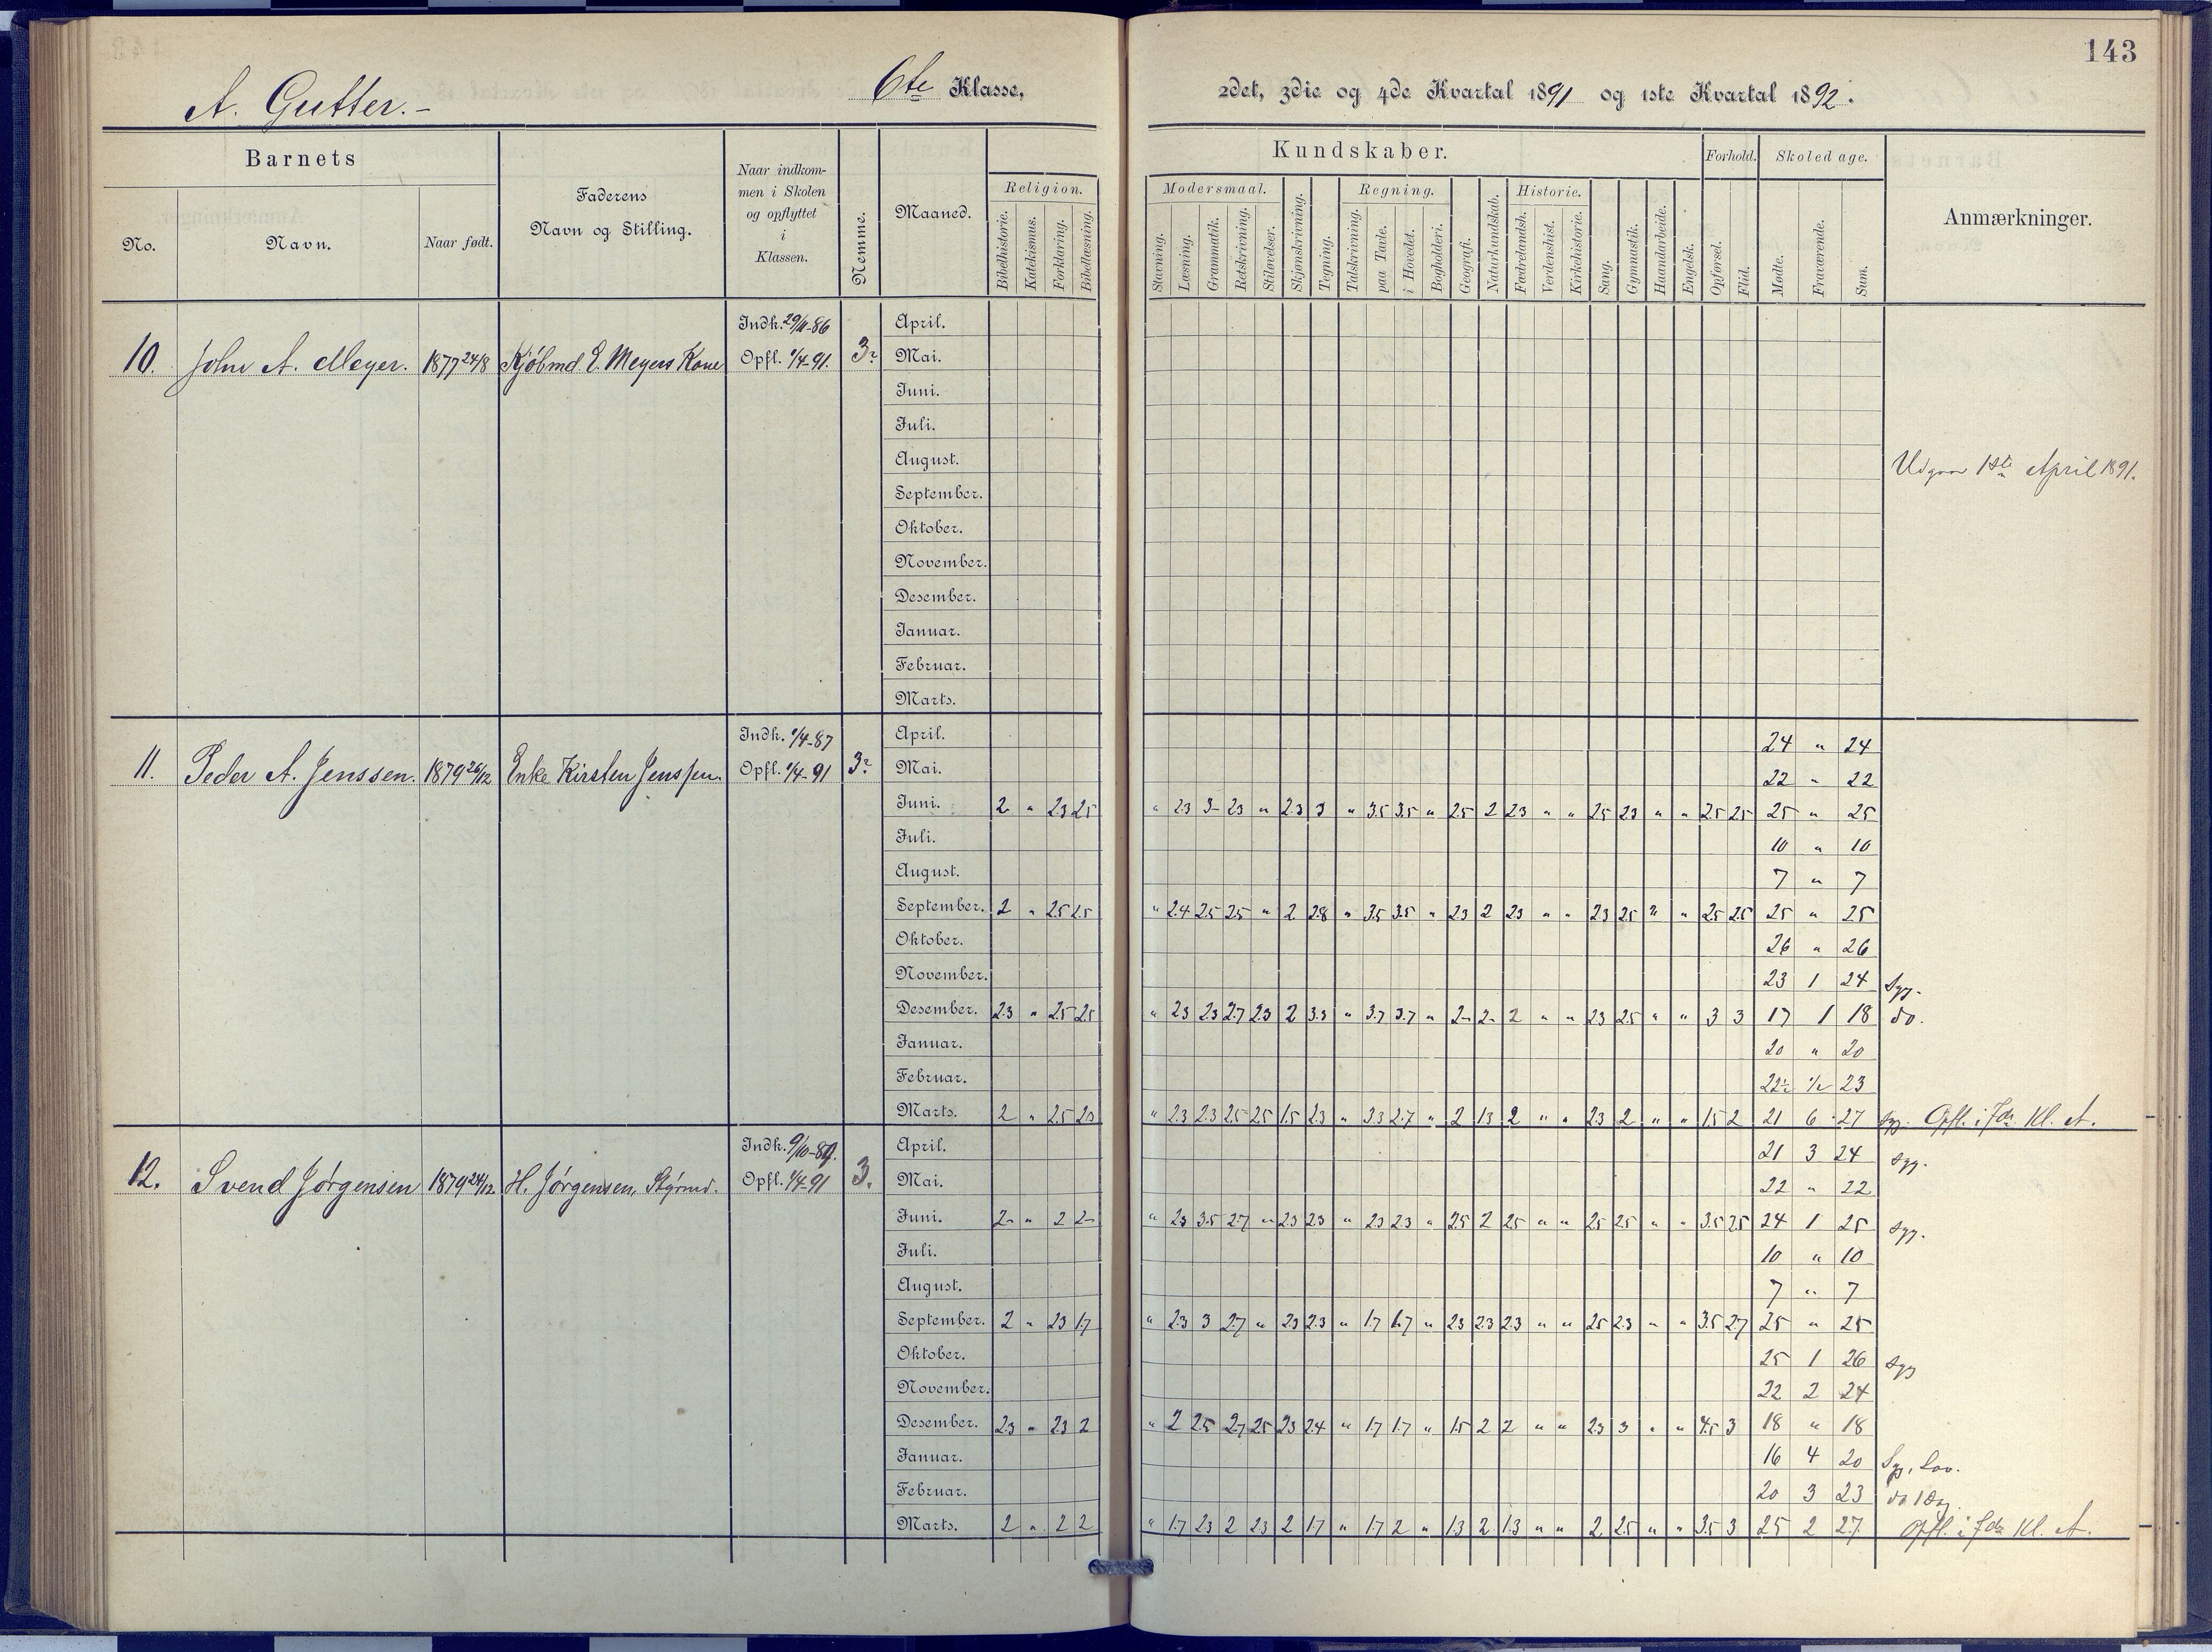 143
A. Gutter.-
6te Klasse,
2det, 3die og 4de Kvartal 1891 og 1ste Kvartal 1892.
Barnets
No.
Navn.
Naar født.
Faderens
Navn og Stilling.
Naar indkom-
men i Skolen
og opflyttet
i
Klassen.
Nemme.
Maaned.
Kundskaber.
Religion.
Bibelhistorie.
Katekismus.
Forklaring.
Bibellæsning.
Modersmaal.
Stavning.
Læsning.
Grammatik.
Retskrivning.
Stiløvelser.
Skjønskrivning.
Tegning.
Regning.
Talskrivning.
paa Tavle.
i Hovedet.
Bogholderi.
Geografi.
Naturkundskab.
Historie.
Fædrelandsh.
Verdenshist.
Kirkehistorie.
Sang.
Gymnastik.
Haandarbeide.
Engelsk.
Forhold.
Opførsel.
Flid.
Skoledage.
Mødte.
Fraværende.
Sum.
Anmærkninger.
10. John A. Meyer. 1877 24/8 Kjøbmd E. Meyers Kone
Indk. 29/11-86
Opfl. 1/4-91. 3?
April.
Mai.
Juni.
Juli.
August.
Udgaar 1ste April 1891.
September.
Oktober.
November.
Desember.
Januar.
Februar.
Marts.
11. Peder A. Jenssen. 1879 26/12 Enke Kirsten Jenssen.
Indk. 1/4-87
Opfl. 1/4-91 3?
April. 24 " 24
Mai. 22 " 22
Juni. 2 " 23 25 " 23 3- 23 " 2.3 3 " 3.5 3.5 " 25 2 23 " " 25 23 " " 2.5 25 25 " 25
Juli. 10 " 10
August. 7 " 7
September. 2 " 25 25 " 2.4 25 25 " 2 28 " 3.5 3.5 " 23 2 23 " " 23 25 " " 25 25 25 " 25
Oktober. 26 " 26
November. 23 1 24 Syg.
Desember. 23 " 25 25 " 23 23 2.7 23 2 3.3 " 3.7 3.7 " 2- 2- 2 " " 23 25 " " 3 3 17 1 18 do.
Januar. 20 " 20
Februar. 22½ ½ 23
Marts. 2 " 25 23 " 23 23 25 25 15 23 " 33 2.7 " 2 13 2 " " 23 2 " " 15 2 21 6 27 Syg. Opfl. i 7de Kl. A.
12. Svend Jørgensen 1879 24/12 H. Jørgensen, Styrmd.
Indk. 9/10-89.
Opfl. 1/4-91 3.
April. 21 3 24 Syg.
Mai. 22 " 22
Juni. 2- " 2 2- " 23 3.5 2.7 " 23 23 " 23 23 " 25 2 25 " " 25 25 " " 3.5 25 24 1 25 Syg.
Juli. 10 " 10
August. 7 " 7
September. 2 " 23 17 " 23 3 27 " 23 23 " 17 1.7 " 23 23 23 " " 25 23 " " 3.5 27 25 " 25
Oktober. 25 1 26 Syg
November. 22 2 24
Desember. 23 " 23 2 " 2 25 27 25 23 24 " 17 1.7 " 15 2 2 " " 23 3 " " 4.5 3 18 " 18
Januar. 16 4 20 Syg, Lov.
Februar. 20 3 23 do 1 Dag.
Marts. 2 " 2 2 " 1.7 23 2 23 2 17 " 1.7 2 " 13 2 13 " " 2 25 " " 3.5 3 25 2 27 Opfl. i 7de Kl. A.